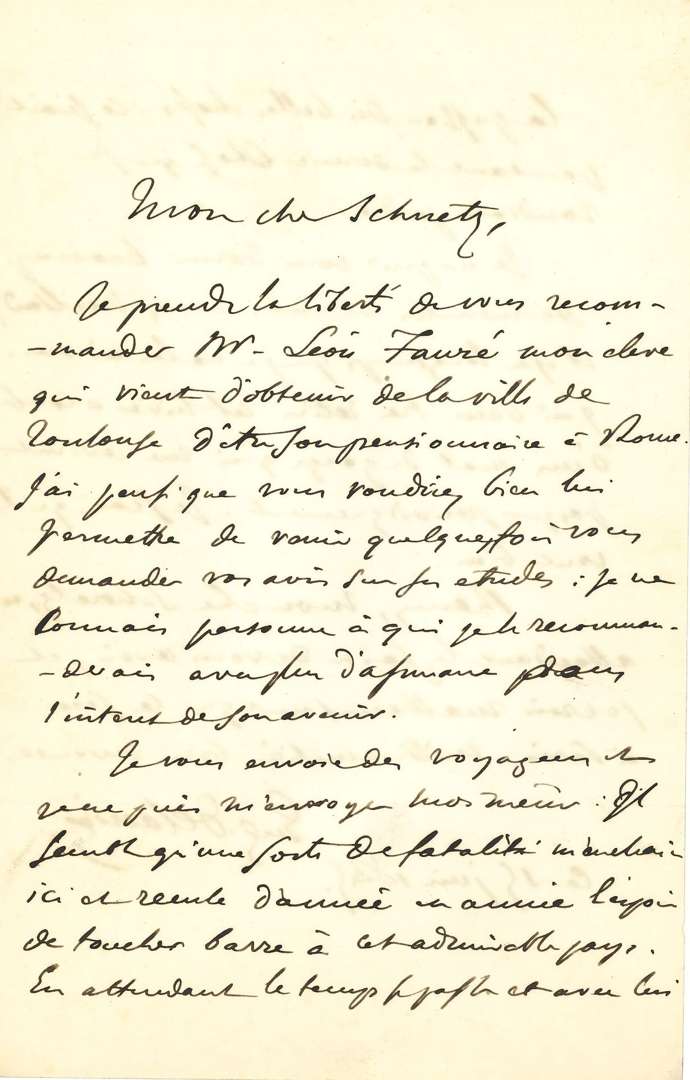 Mon cher Schnetz,
Je prends la liberté de vous recom-
-mander Mr Léon Fauré mon eleve
qui vient d'obtenir de la ville de
Toulouse d'être son pensionnaire à Rome.
J'ai pensé que vous voudriez bien lui
permettre de venir quelquefois vous
demander vos avis sur ses etudes : je ne
connais personne à qui je le recomman-
-derais avec plus d'assurance dans
l'interet de son avenir.
Je vous envoie des voyageurs et
je ne puis m'envoyer moi meme : Il
semble qu'une sorte de fatalité m'enchaine
ici et recule d'année en année l'espoir
de toucher barre à cet admirable pays.
En attendant le temps se passe et avec lui